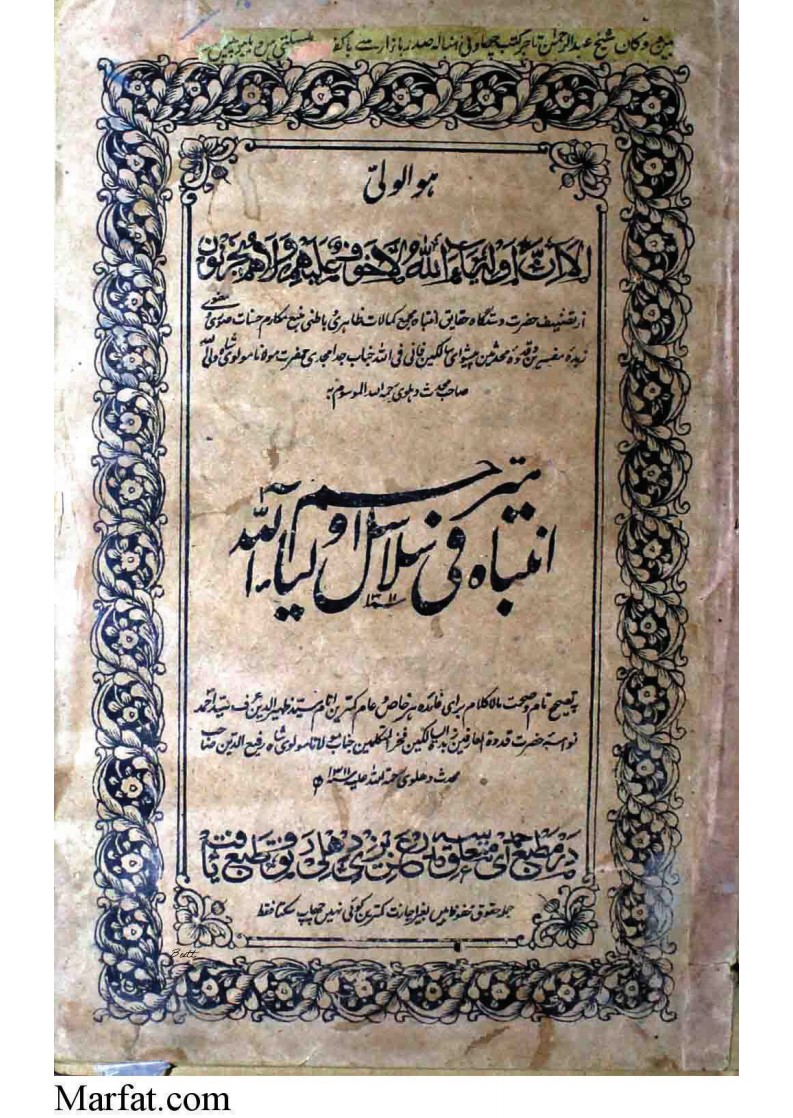 شیخ عبدالرحمن تاجر کتب چھاونی انبالہ صدر بازار سے
ھو الولیّ
الا ان اولیاء اللہ لا خوف علیھم ولا ھم یحزنون
از تصنیف حضرت دستگاہ حقایق انتباہ مجمع کمالات ظاہری و باطنی منبع مکارم حسنات صوری و معنوی
زبدۂ مفسرین قدوۂ محدثین پیشوای سالکین فانی فی اللہ جناب جد امجدی حضرت مولانا مولوی شاہ ولی اللہ
صاحب محدث دہلوی رحمۃ اللہ الموسوم بہ
مترجم
انتباہ فی سلاسل اولیاء اللہ
۱۳۱۱
بتصحیح تام و صحت مالاکلام برای فائدہ ہر خاص و عام کمترین انام سید ظہیر الدین عرف سید احمد
نواسہ حضرت قدوۃ العارفین زبدۃ السالکین فخر المتکلمین جناب مولانا مولوی شاہ رفیع الدین صاحب
محدث دھلوی رحمۃ اللہ علیہ سنہ ۱۳۱۱ ھ
در مطبع احمدی متعلق مدرسہ عزیزی دھلی رونق طبع یافت
جملہ حقوق محفوظ ہیں بغیر اجازت کمترین کوئی نہیں چھاپ سکتا فقط
Butt
Marfat.com